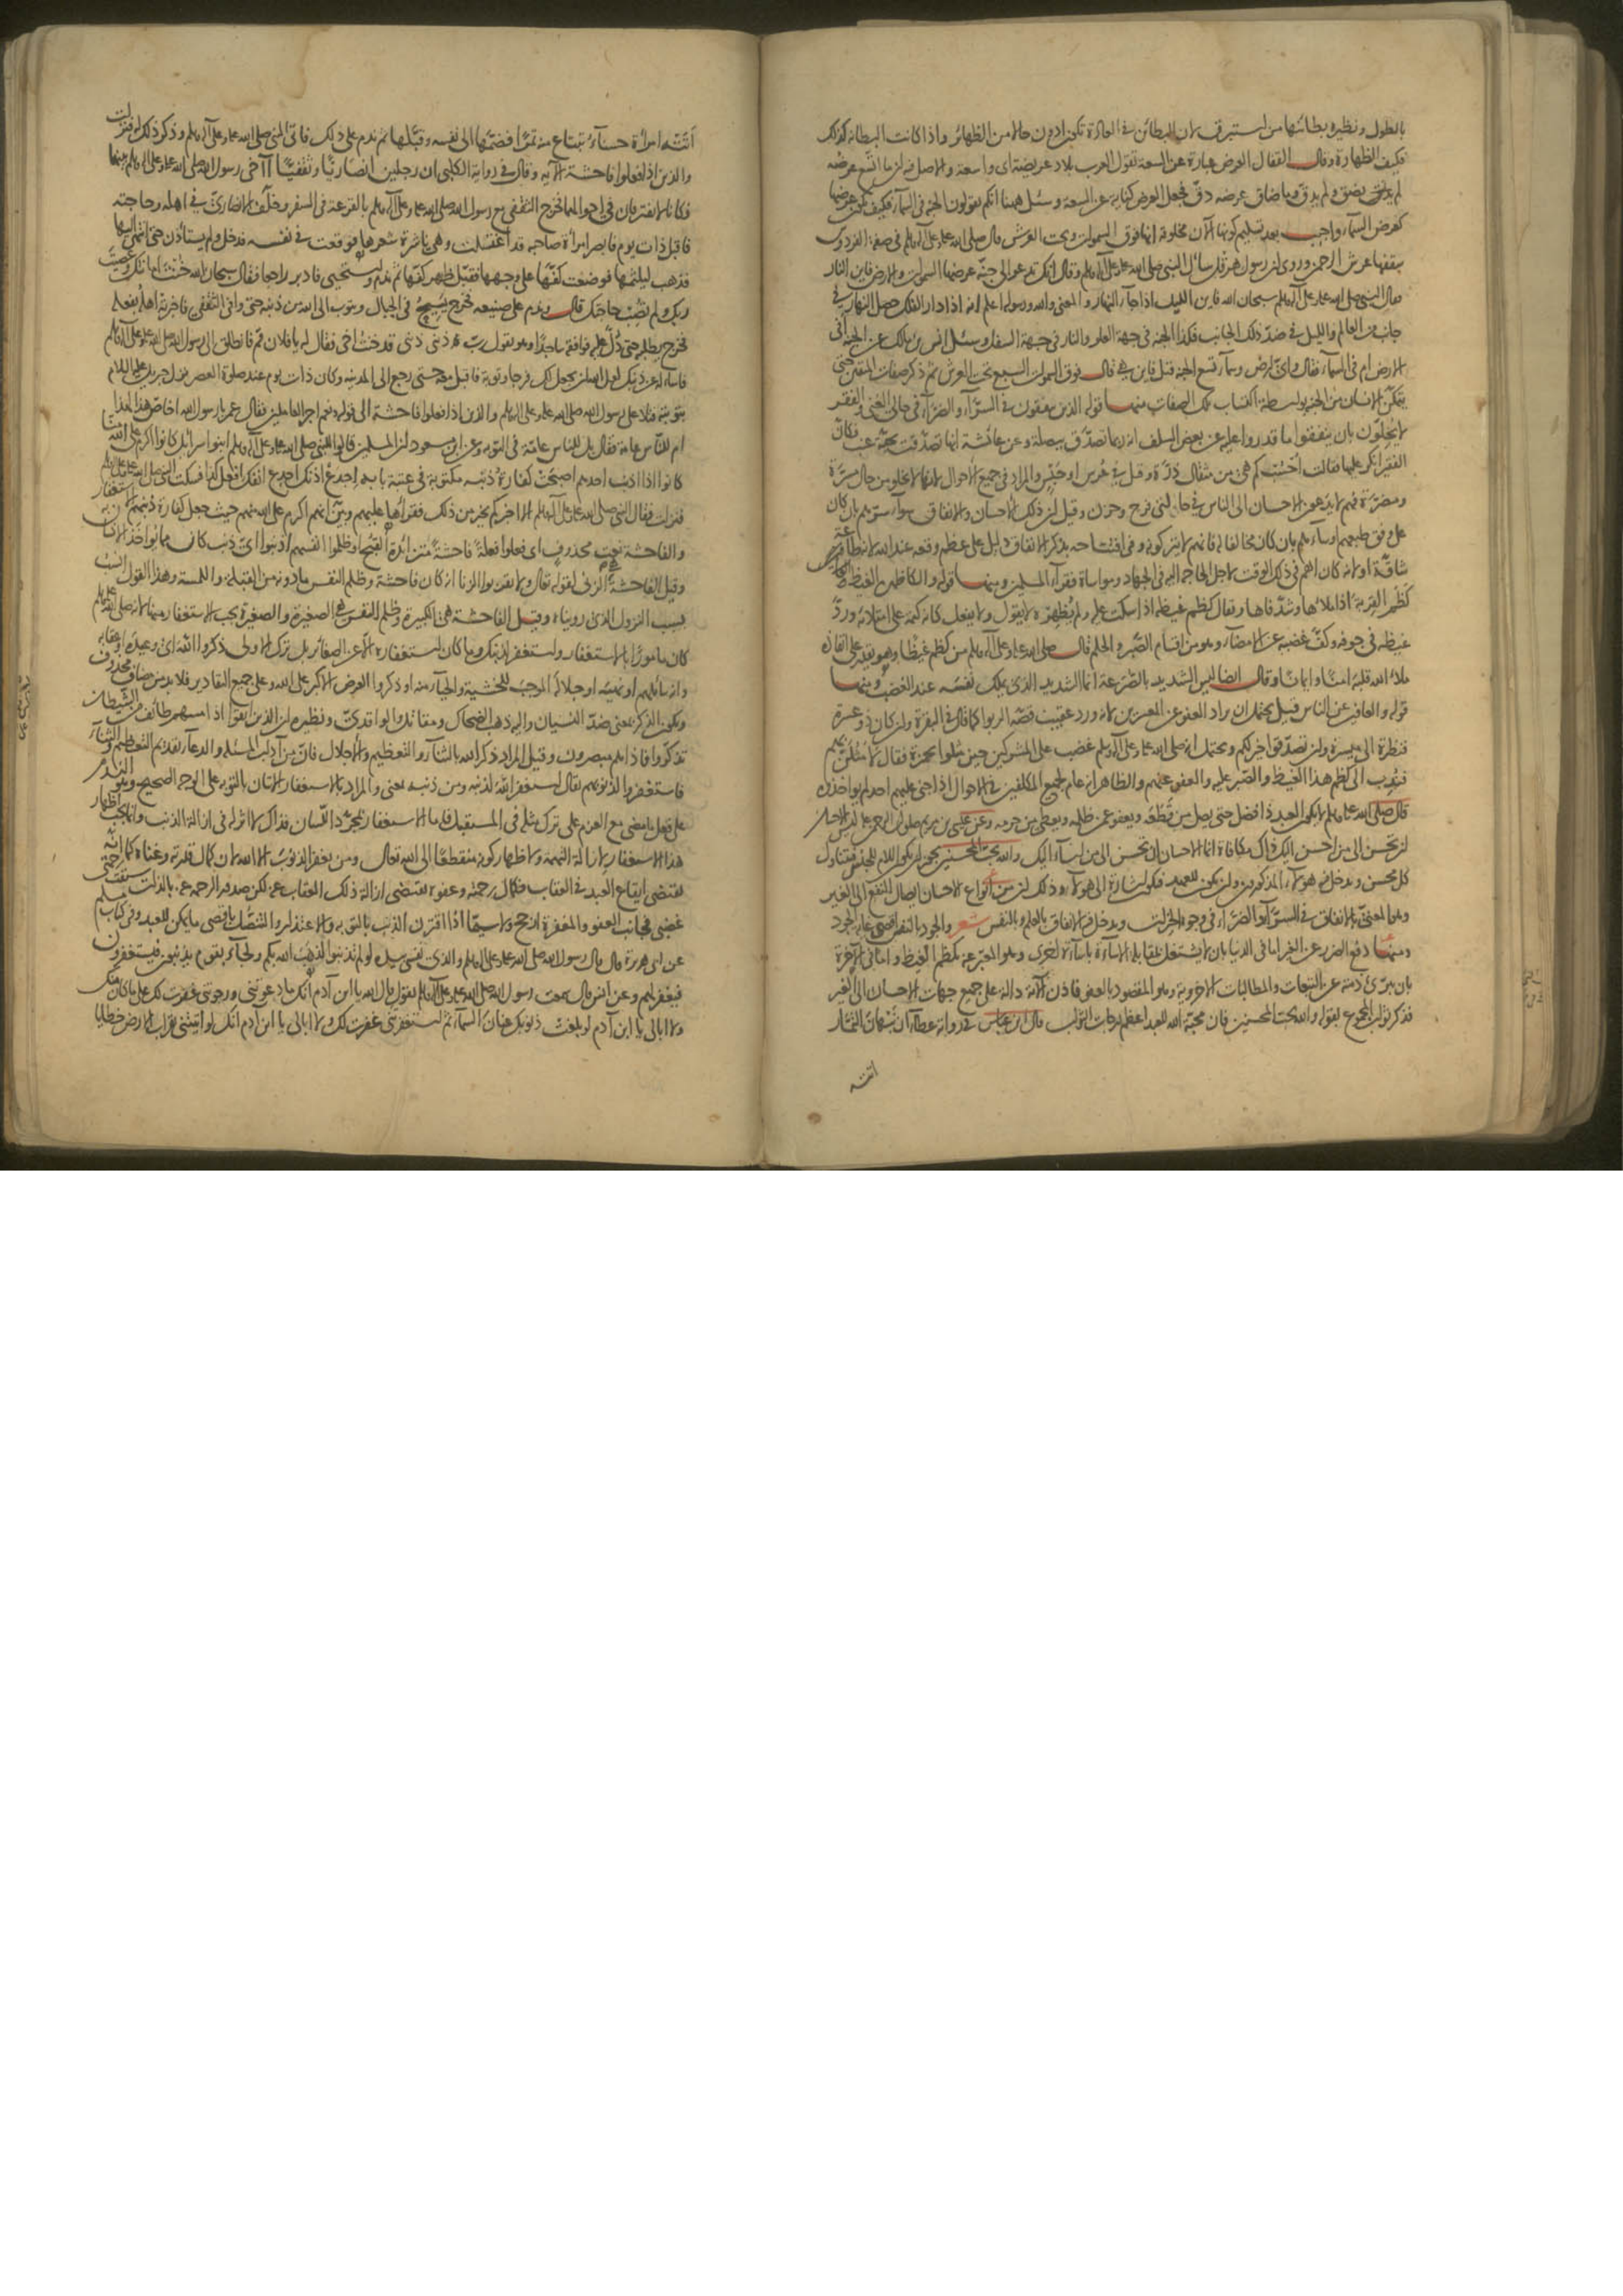 بالطول ونظيره بطائنها من استبرق لان البطائن في العادة تكون ادون حالا من الظهائر واذا كانت البطانة كذلك
فكيف الظهارة وقال القفال العرض عبارة عن السعة تقول العرب بلاد عريضة اى واسعة والاصل فيه ان ما اتسع عرضه
لم يضق ولم يدق وما ضاق عرضه دق فجعل العرض كناية عن السعة وسئل ههنا انكم تقولون الجنة في السماء فكيف يكون عرضها
كعرض السماء واجيب بعد تسليم كونها الآن مخلوقة انها فوق السموات وتحت العرش قال صلى الله عليه وعلى آله وسلم في صفة الفردوس
سقفها عرش الرحمن وروى ان رسول هرقل سأل النبي صلى الله عليه وعلى آله وسلم وقال انك تدعو الى جنة عرضها السموات والارض فاين النار
فقال النبي صلى الله عليه وعلى آله وسلم سبحان الله فاين الليل اذا جاء النهار والمعنى والله ورسوله اعلم انه اذا دار الفلك حصل النهار في
جانب من العالم والليل في ضد ذلك الجانب فكذا الجنة في جهة العلو والنار في جهة السفل وسئل انس بن مالك عن الجنة أفي
الارض ام في السماء فقال واى ارض وسماء تسع الجنة قيل فاين هي قال فوق السموات السبع تحت العرش ثم ذكر صفات المتقين حتى
يتمكن الانسان من الجنة بواسطة اكتساب تلك الصفات منها قوله الذين ينفقون في السراء والضراء في حالي الغنى والفقر
لا يخلون بان ينفقوا ما قدروا عليه عن بعض السلف انه ربما تصدق ببصلة وعن عائشة انها تصدقت بحبة عنب فكان
الفقير انكر عليها فقالت احسب كم هي من مثقال ذرة وقيل في عرس او حبس والمراد في جميع الاحوال لانها لا تخلو من حال مسرة
ومضرة فهم لا يدعون الاحسان الى الناس في حالتى فرح وحزن وقيل ان ذلك الاحسان والانفاق سواء سرهم بان كان
على وفق طبعهم او ساءهم بان كان مخالفا له فانهم لا يتركونه وفي افتتاحه بذكر الانفاق دليل على عظم وقعه عند الله لانه طاعة
شاقة او لانه كان اهم في ذلك الوقت لاجل الحاجة اليه في الجهاد ومواساة فقراء المسلمين ومنها قوله والكاظمين الغيظ
كظم القربة اذا ملأها وشد فاها ويقال كظم غيظه اذا سكت عليه ولم يظهره لا بقول ولا بفعل كانه كتمه على امتلائه ورد
غيظه في جوفه وكف غضبه عن الامضاء وهو من اقسام الصبر والحلم قال صلى الله عليه وعلى آله وسلم من كظم غيظا وهو يقدر على انفاذه
ملأ الله قلبه امنا وايمانا وقال ايضا ليس الشديد بالصرعة انما الشديد الذى يملك نفسه عند الغضب ومنها
قوله والعافين عن الناس قيل يحتمل ان يراد العفو عن المعسرين لانه ورد عقيب قصة الربوا كما قال في البقرة وان كان ذو عسرة
فنظرة الى ميسرة وان تصدقوا خير لكم ويحتمل انه صلى الله عليه وعلى آله وسلم غضب على المشركين حين مثلوا بحمزة فقال لامثلن بهم
فندب الى كظم هذا الغيظ والصبر عليه والعفو عنهم والظاهر انه عام لجميع المكلفين في الاحوال اذا جنى عليهم احد لم يؤاخذوه
قال صلى الله عليه وسلم لا يكون العبد ذا فضل حتى يصل من قطعه ويعفو عن ظلمه ويعطى من حرمه وعن عيسى بن مريم صلوات الرحمن عليه ليس الاحسان
ان تحسن الى من احسن اليك ذاك مكافاة انما الاحسان ان تحسن الى من اساء اليك والله يحب المحسنين يجوز ان يكون اللام للجنس فيتناول
كل محسن ويدخل فيه هؤلاء المذكورون وان يكون للعهد فيكون اشارة الى هؤلاء وذلك ان من انواع الاحسان ايصال النفع الى الغير
وهو المعنى بالانفاق في السراء والضراء في وجوه الخيرات ويدخل فيه الانفاق بالعلم وبالنفس شعر والجود بالنفس اقصى غاية الجود
ومنها دفع الضرر عن الغير اما في الدنيا بان لا يشتغل بمقابلة الاساءة باساءة اخرى وهو المعبر عنه بكظم الغيظ واما في الآخرة
بان يبرئ ذمته عن التبعات والمطالبات الاخروية وهو المقصود بالعفو فاذن الآية دالة على جميع جهات الاحسان الى الغير
فذكر ثواب المجموع بقوله والله يحب المحسنين فان محبة الله للعبد اعظم درجات الثواب قال ابن عباس في رواية عطاء ان نبهان التمار
اتته
اتته امرأة حسناء تبتاع منه تمرا فضمها الى نفسه وقبلها ثم ندم على ذلك فاتى النبي صلى الله عليه وعلى آله وسلم وذكر ذلك له فنزلت
والذين اذا فعلوا فاحشة الآية وقال في رواية الكلبي ان رجلين انصاريا وثقفيا آخى رسول الله صلى الله عليه وعلى آله وسلم بينهما
فكانا لا يفترقان في احوالهما فخرج الثقفي مع رسول الله صلى الله عليه وعلى آله وسلم بالقرعة في السفر وخلف الانصارى في اهله وحاجته
فاقبل ذات يوم فابصر امرأة صاحبه قد اغتسلت وهي ناشرة شعرها فوقعت في نفسه فدخل ولم يستأذن حتى انتهى اليها
فذهب ليلثمها فوضعت كفها على وجهها فقبل ظهر كفها ثم ندم واستحيى فادبر راجعا فقال سبحان الله خنت امانتك وعصيت
ربك ولم تصب حاجتك قال وندم على صنيعه فخرج يسيح في الجبال ويتوب الى الله من ذنبه حتى وافى الثقفي فاخبرته اهله بفعله
فخرج يطلبه حتى دل عليه فوافقه ساجدا وهو يقول رب ذنبى ذنبى قد خنت اخى فقال له يا فلان قم فانطلق الى رسول الله صلى الله عليه وعلى آله وسلم
فاسأله عن ذنبك لعل الله ان يجعل لك فرجا وتوبة فاقبل معه حتى رجع الى المدينة وكان ذات يوم عند صلوة العصر نزل جبريل عليه السلام
بتوبته فتلا على رسول الله صلى الله عليه وعلى آله وسلم والذين اذا فعلوا فاحشة الى قوله ونعم اجر العاملين فقال عمر يا رسول الله اخاص هذا لهذا
ام للناس عامة فقال بل للناس عامة في التوبة وعن ابن مسعود ان المسلمين قالوا للنبي صلى الله عليه وعلى آله وسلم ابنو اسرائيل كانوا اكرم على الله منا
كانوا اذا اذنب احدهم اصبحت كفارة ذنبه مكتوبة في عتبة بابه اجدع اذنك اجدع انفك افعل كذا فسكت النبي صلى الله عليه وعلى آله وسلم
فنزلت فقال النبي صلى الله عليه وعلى آله وسلم الا اخبركم بخير من ذلك فقرأها عليهم وبين انهم اكرم على الله منهم حيث جعل كفارة ذنبهم الاستغفار
والفاحشة نعت محذوف اى فعلوا فعلة فاحشة متزايدة القبح او ظلموا انفسهم اذنبوا اى ذنب كان مما يؤاخذ الانسان به
وقيل الفاحشة الزنى لقوله تعالى ولا تقربوا الزنا انه كان فاحشة وظلم النفس ما دونه من القبلة واللمسة وهذا القول انسب
بسبب النزول الذى رويناه وقيل الفاحشة هي الكبيرة وظلم النفس هي الصغيرة والصغيرة يجب الاستغفار منها لانه صلى الله عليه وسلم
كان مامورا بالاستغفار واستغفر لذنبك وما كان استغفاره الا عن الصغائر بل ترك الاولى ذكروا الله اى وعيده او عقابه
وانه سائلهم او نهيه او جلاله الموجب للخشية والحياء منه او ذكروا العرض الاكبر على الله وعلى جميع التقادير فلا بد من مضاف محذوف
ويكون الذكر بمعنى ضد النسيان واليه ذهب الضحاك ومقاتل والواقدى ونظيره ان الذين اتقوا اذا مسهم طائف من الشيطان
تذكروا فاذا هم مبصرون وقيل المراد ذكر الله بالثناء والتعظيم والاجلال فان من آداب المسئلة والدعاء تقديم التعظيم والثناء
فاستغفروا لذنوبهم يقال استغفر الله لذنبه ومن ذنبه بمعنى والمراد بالاستغفار الاتيان بالتوبة على الوجه الصحيح وهو الندم
على فعل ما مضى مع العزم على ترك مثله في المستقبل فاما الاستغفار بمجرد اللسان فذاك لا اثر له في ازالة الذنب وانما يجب اظهار
هذا الاستغفار لازالة التهمة ولاظهار كونه منقطعا الى الله تعالى ومن يغفر الذنوب الا الله لان كمال قدرته وغناه كما انه
يقتضى ايقاع العبد في العقاب فكمال رحمته وعفوه يقتضى ازالة ذلك العقاب عنه لكن صدور الرحمة عنه بالذات سبقت رحمتى
غضبى فجانب العفو والمغفرة ارجح ولا سيما اذا اقترن الذنب بالتوبة والاعتذار والتنصل باقصى ما يمكن للعبد وفي كتاب مسلم
عن ابى هريرة قال قال رسول الله صلى الله عليه وعلى آله وسلم والذى نفسى بيده لو لم تذنبوا لذهب الله بكم ولجاء بقوم يذنبون فيستغفرون
فيغفر لهم وعن انس قال سمعت رسول الله صلى الله عليه وعلى آله وسلم يقول قال الله يا ابن آدم انك ما دعوتنى ورجوتنى غفرت لك على ما كان منك
ولا ابالى يا ابن آدم لو بلغت ذنوبك عنان السماء ثم استغفرتنى غفرت لك ولا ابالى يا ابن آدم انك لو اتيتنى بقراب الارض خطايا